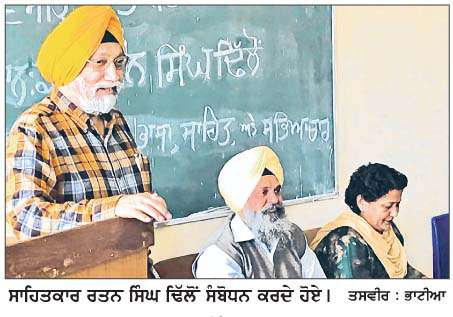 ਰਤਨ ਸਿੰਘ ਢਿੱਲੋਂ
ਭਾਸ਼ਾ, ਸਾਹਿਤ, ਅਤੇ ਸਭਿਆਚਾਰ
ਸਾਹਿਤਕਾਰ ਰਤਨ ਸਿੰਘ ਢਿੱਲੋਂ ਸੰਬੋਧਨ ਕਰਦੇ ਹੋਏ। ਤਸਵੀਰ : ਭਾਟੀਆ